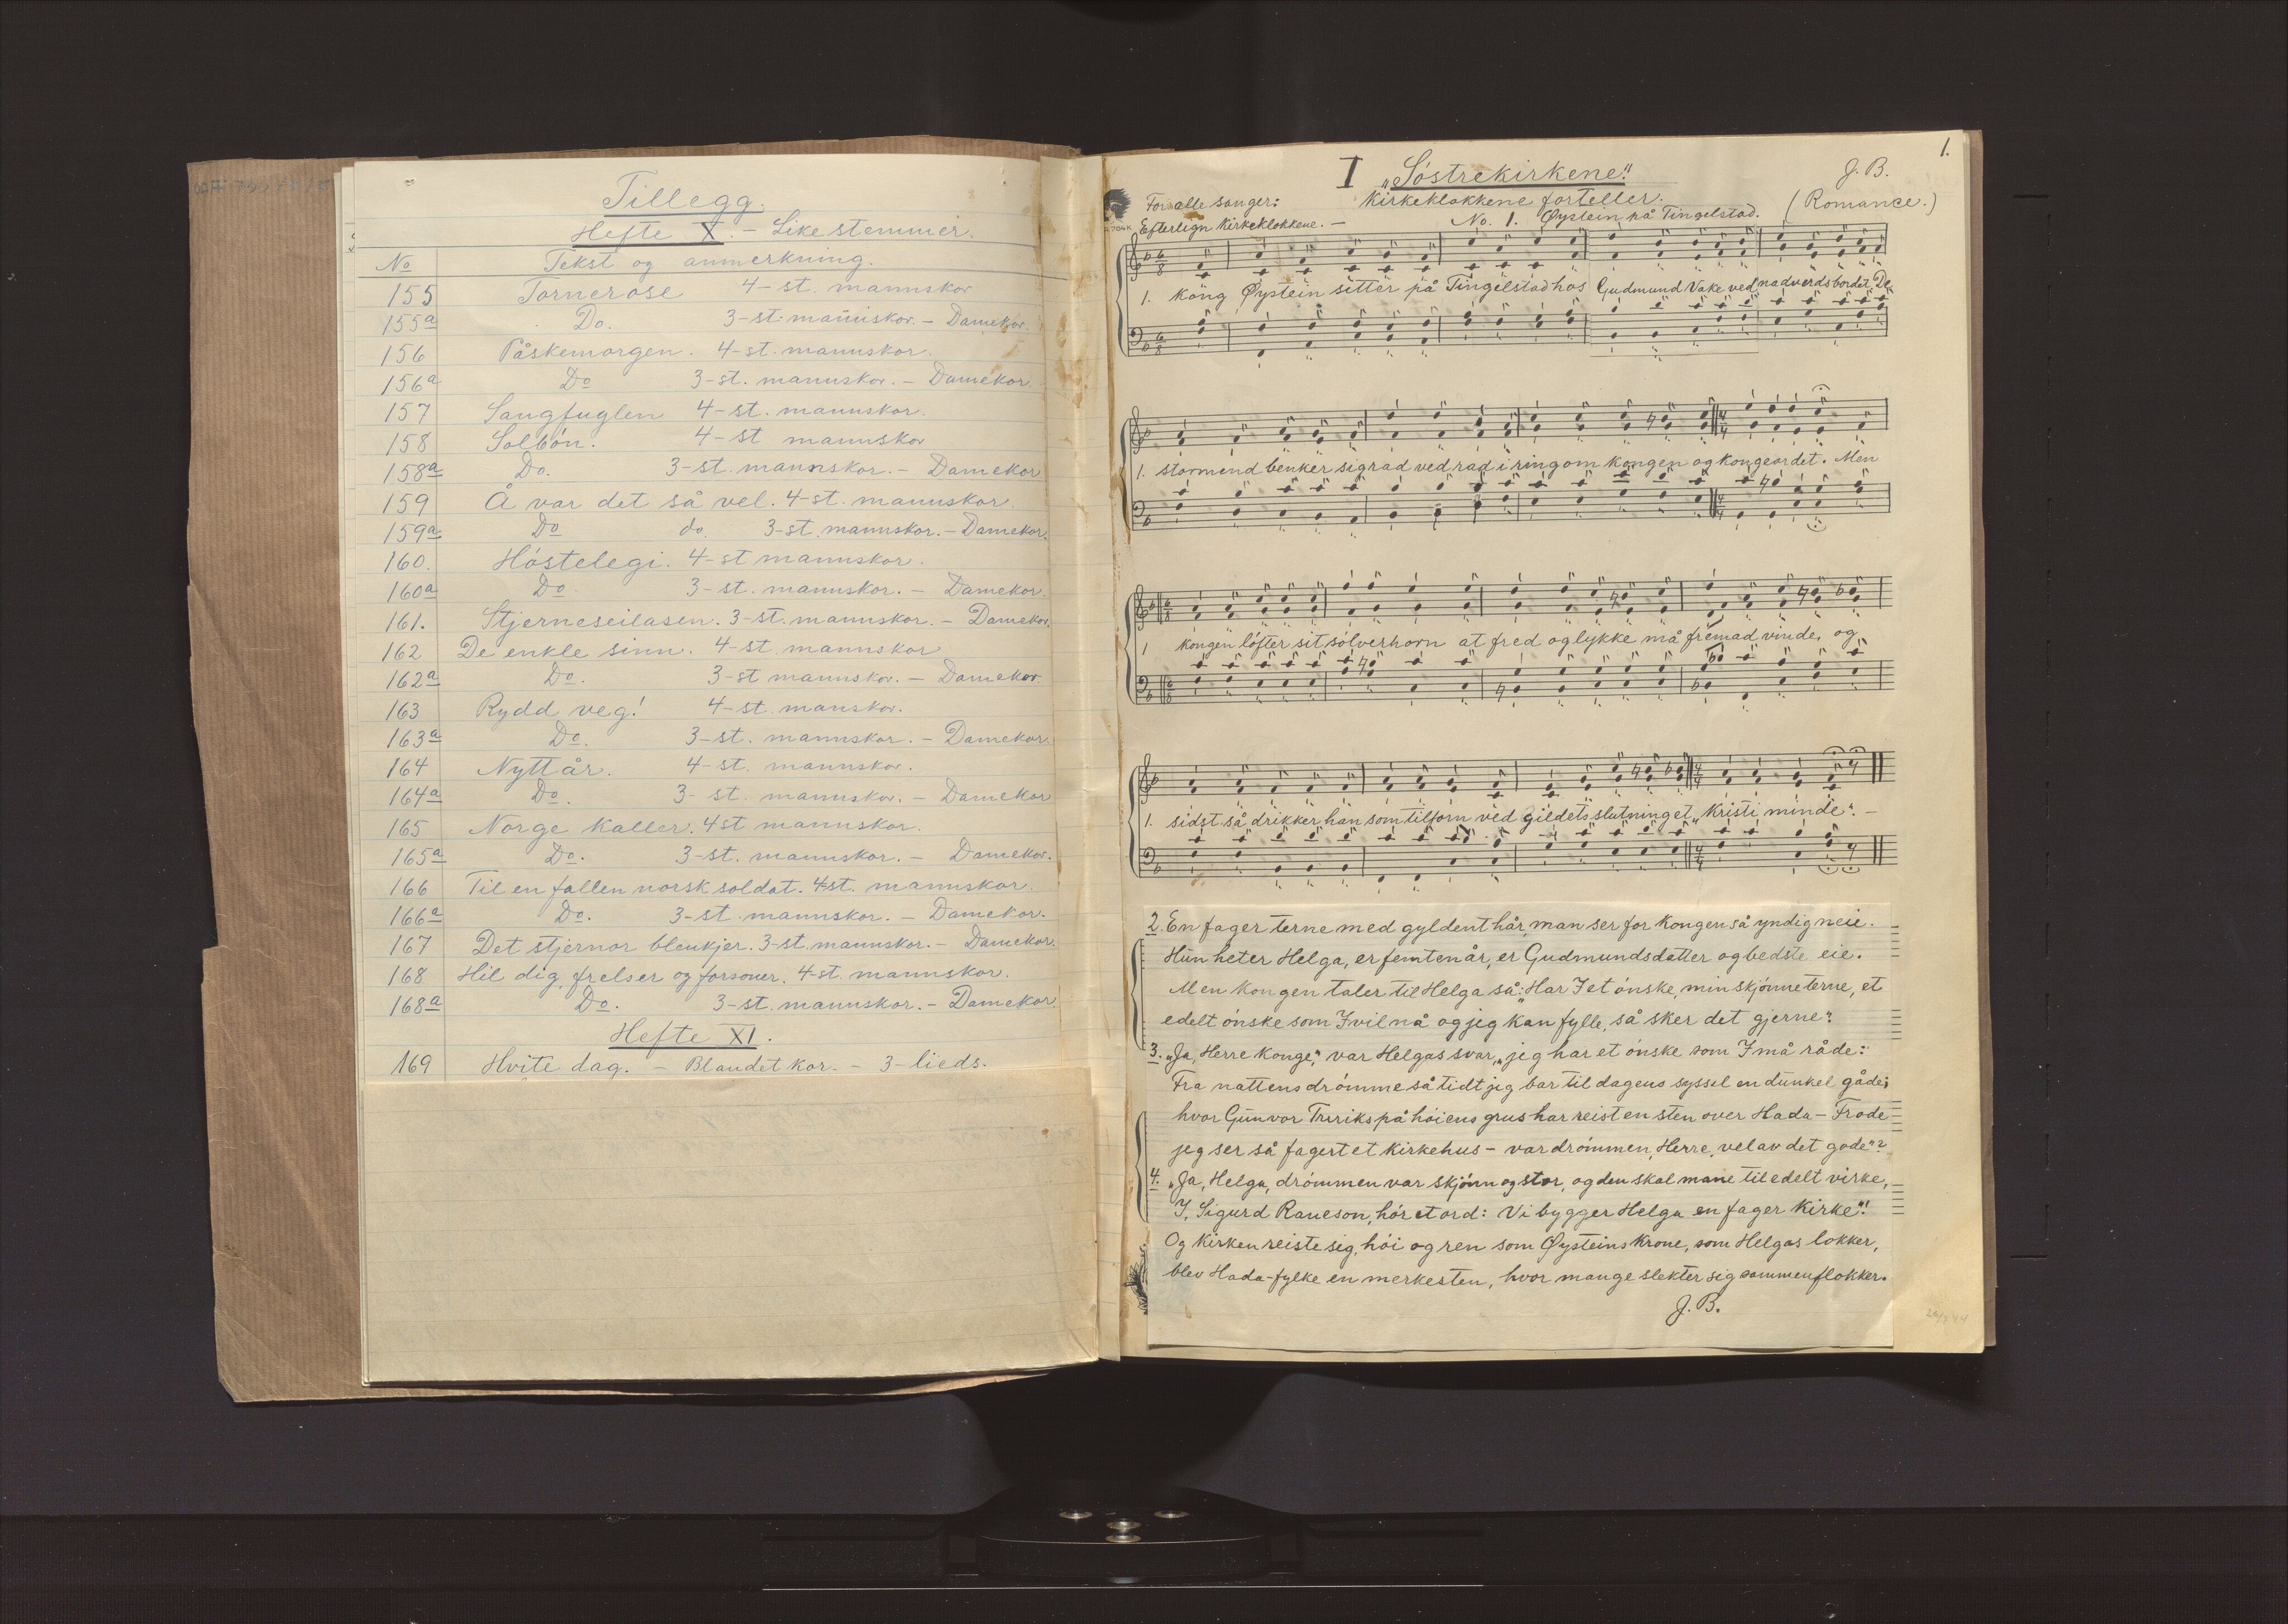 Tillegg.
Hefte X. - Like stemmer.
No Tekst og anmerkning.
155 Tornerose 4-st. mannskor
155a Do. 3-st. mannskor. - Damekor.
156 Påskemorgen. 4-st. mannskor.
156a Do 3-st. mannskor. - Damekor.
157 Sangfuglen 4-st. mannskor.
158 Solbön. 4-st mannskor
158a Do. 3-st. mannskor. - Damekor
159 Å var det så vel. 4-st. mannskor.
159a Do do. 3-st. mannskor. - Damekor.
160. Höstelegi. 4-st mannskor.
160a Do. 3-st. mannskor. - Damekor.
161. Stjerneseilasen. 3-st. mannskor. - Damekor.
162 De enkle sinn. 4-st. mannskor
162a Do. 3-st mannskor. - Damekor.
163 Rydd veg! 4-st. manskor.
163a Do. 3-st. mannskor. - Damekor.
164 Nyttår. 4-st. mannskor.
164a Do. 3-st. mannskor. - Damekor
165 Norge kaller. 4st mannskor.
165a Do. 3-st. mannskor. - Damekor.
166 Til en fallen norsk soldat. 4-st. mannskor.
166a Do. 3-st. mannskor. - Damekor.
167 Det stjernor blenkjer. 3-st. mannskor. - Damekor.
168 Hil dig, frelser og forsoner. 4-st. mannskor.
168a Do. 3-st. mannskor. - Damekor
Hefte XI.
169 Hvite dag. - Blandet kor. - 3-lieds.
1.
I "Söstrekirkene". J. B.
For alle sanger: Kirkeklokkene forteller. (Romance.)
Efterlign kirkeklokkene. - No. 1. Øystein på Tingelstad.
1. Kong Øystein sitter på Tingelstad hos Gudmund Vake ved nadverdsbordet. De
1. stormend benker sig rad ved rad i ring om kongen og kongeordet. Men
1 kongen löfter sit sölverhorn at fred og lykke må fremad vinde, og
1. sidst så drikker han som tilforn ved gildets slutning et "Kristi minde". -
2. En fager terne med gyldent hår, man ser for kongen så yndig neie.
Hun heter Helga, er femten år, er Gudmunds datter og bedste eie.
Men kongen taler til Helga så: "Har I et önske, min skjönne terne, et
edelt önske som I vil nå og jeg kan fylle, så sker det gjerne".
3. "Ja, Herre Konge", var Helgas svar, "jeg har et önske som I må råde:
Fra nattens drömme så tidt jeg bar til dagens syssel en dunkel gåde;
hvor Gunvor Tririks på höiens grus har reist en sten over Hada-Frode
jeg ser så fagert et kirkehus - var drömmen, Herre, vel av det gode"?
4. "Ja, Helga, drömmen var skjönn og stor, og den skal mane til edelt virke,
I, Sigurd Raneson, hör et ord: Vi bygger Helga en fager Kirke"!
Og kirken reiste sig, höi og ren som Øysteins krone, som Helgas lokker,
blev Hada-fylke en merkesten, hvor mange slekter sig sammenflokker.
J. B.